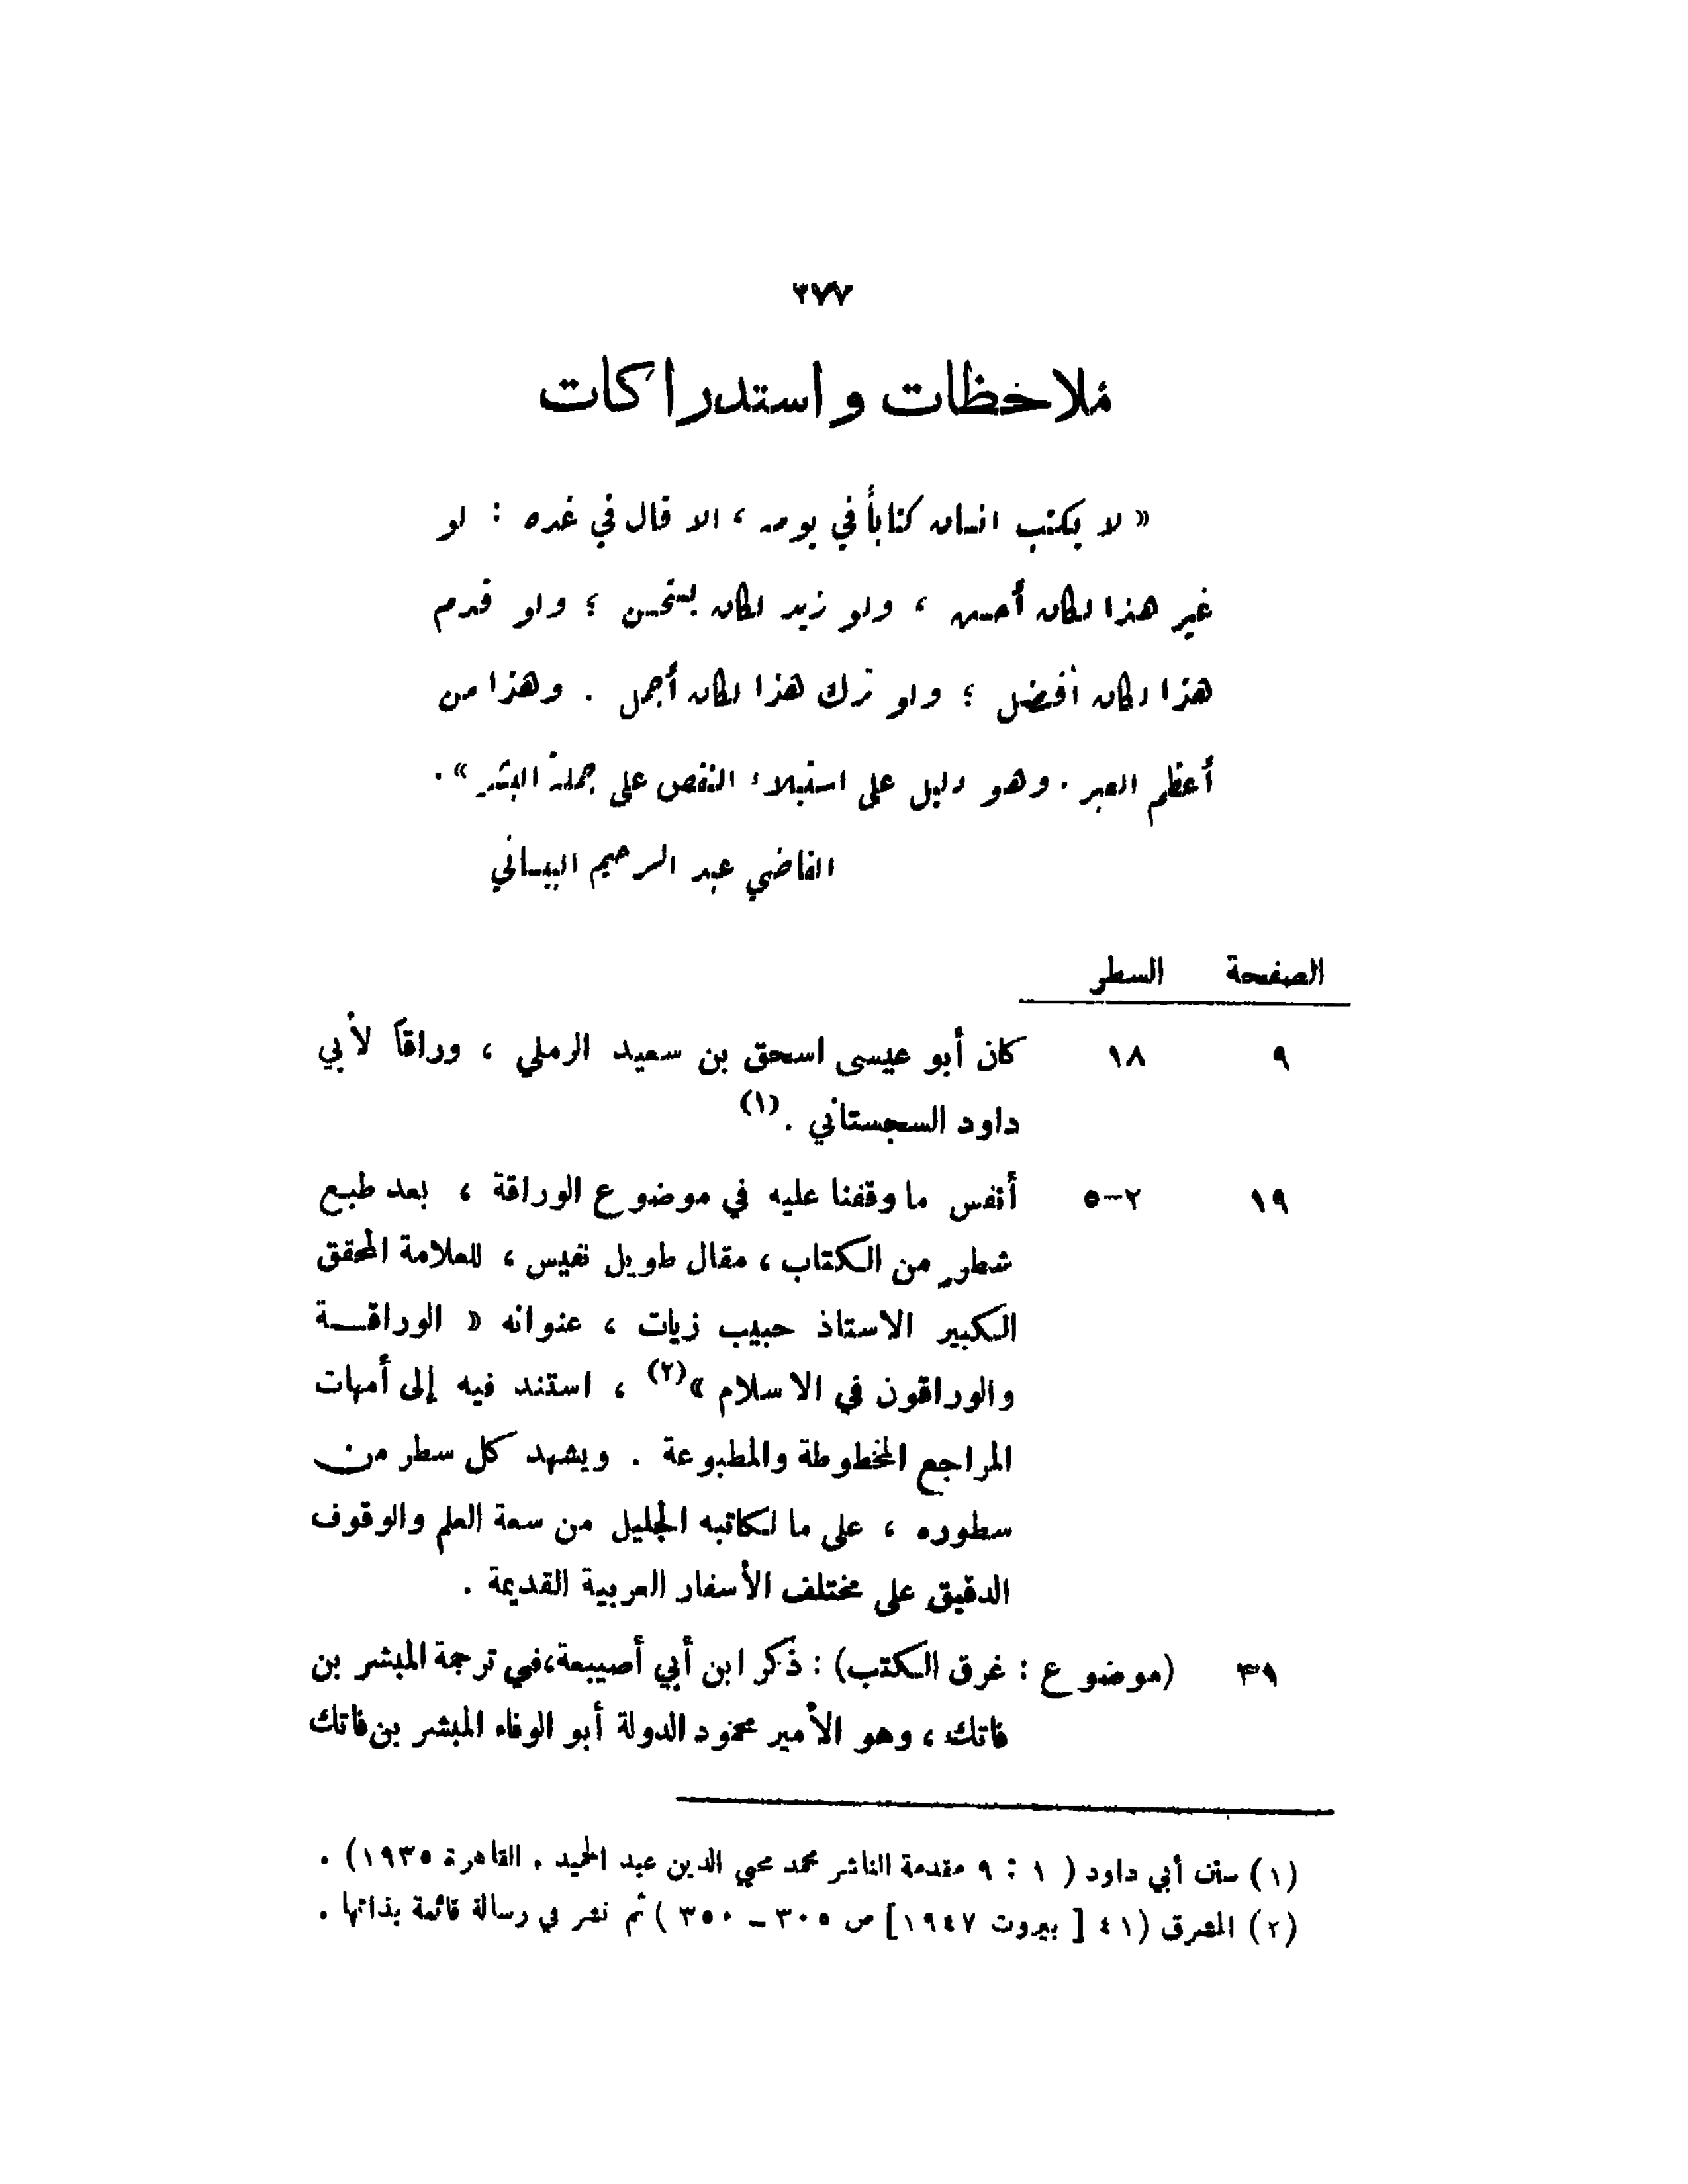 ٣٧٧
ملاحظات واستدراكات
« لا يكتب انسان كتاباً في يومه ، الا قال في غده : لو
غير هذا لكان أحسن ، ولو زيد لكان يستحسن ؛ ولو قدم
هذا لكان أفضل ؛ ولو ترك هذا لكان أجمل . وهذا من
أعظم العبر . وهو دليل على استيلاء النقص على جملة البشر » .
القاضي عبد الرحيم البيساني
الصفحة السطر
٩ ١٨ كان أبو عيسى اسحق بن سعيد الرملي ، وراقاً لأبي
داود السجستاني . (١)
١٩ ٢-٥ أنفس ما وقفنا عليه في موضوع الوراقة ، بعد طبع
شطر من الكتاب ، مقال طويل نفيس ، للعلامة المحقق
الكبير الاستاذ حبيب زيات ، عنوانه « الوراقة
والوراقون في الاسلام » (٢) ، استند فيه إلى أمهات
المراجع المخطوطة والمطبوعة . ويشهد كل سطر من
سطوره ، على ما لكاتبه الجليل من سعة العلم والوقوف
الدقيق على مختلف الأسفار العربية القديمة .
٣٩ (موضوع : غرق الكتب) : ذكر ابن أبي أصيبعة، في ترجمة المبشر بن
فاتك ، وهو الأمير محمود الدولة أبو الوفاء المبشر بن فاتك
(١) سنن أبي داود ( ١ : ٩ مقدمة الناشر محمد محيي الدين عبد الحميد . القاهرة ١٩٣٥) .
(٢) المشرق (٤١ [ بيروت ١٩٤٧] ص ٣٠٥ – ٣٥٠ ) ثم نشر في رسالة قائمة بذاتها .